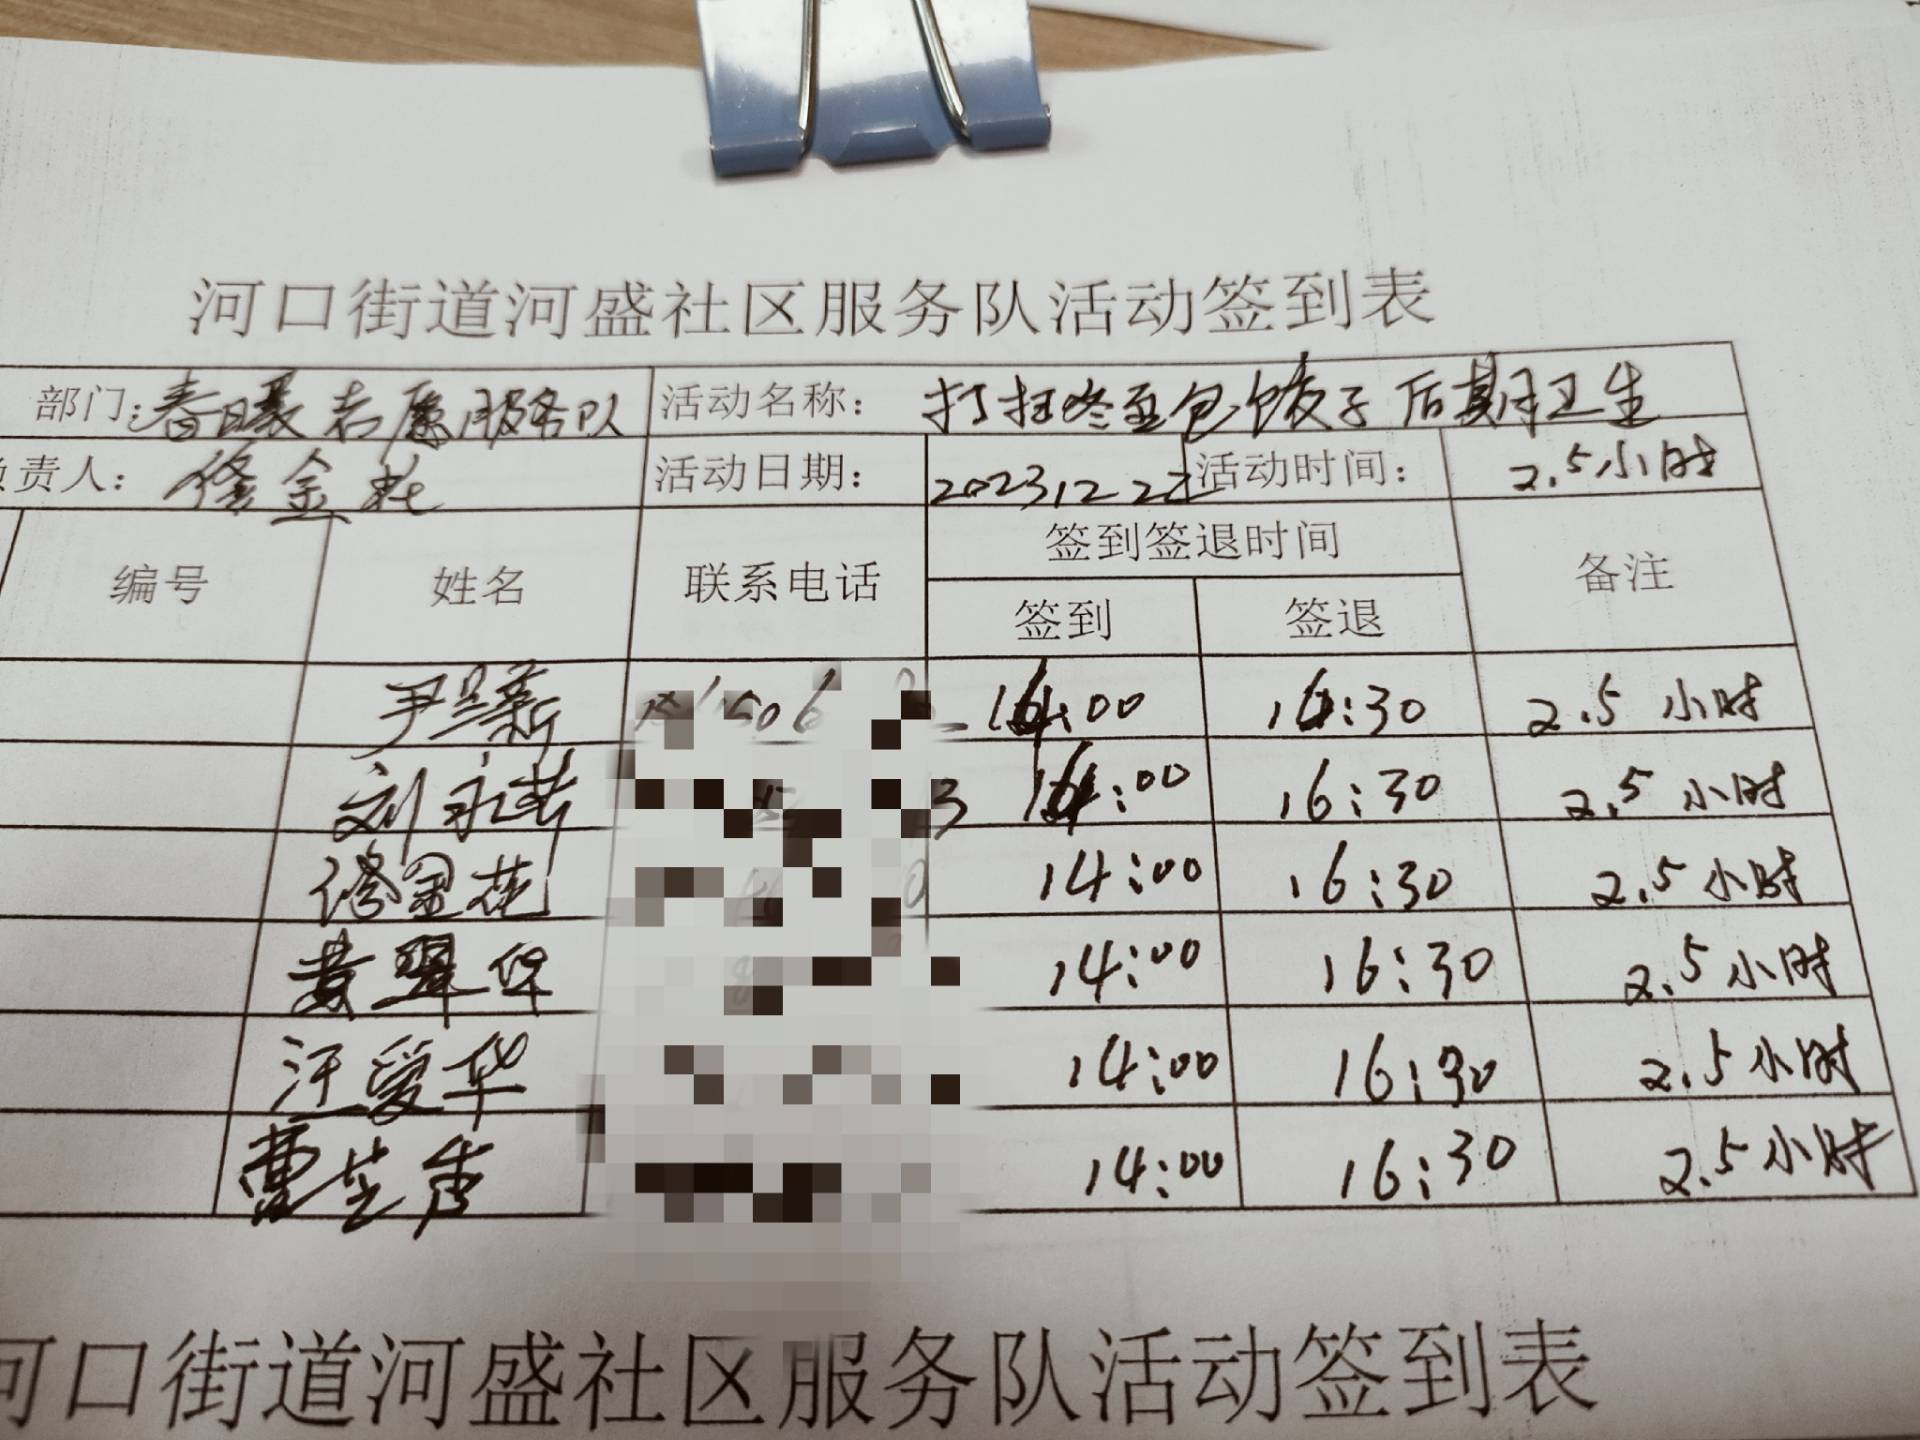 河口街道河盛社区服务队活动签到表
部门：春日暖志愿服务队 活动名称： 打扫冬至包饺子后期卫生
负责人： 修金花 活动日期： 2023.12.22 活动时间： 2.5小时
编号 姓名 联系电话 签到签退时间 备注
签到 签退
尹兰新 14:00 16:30 2.5小时
刘永芹 14:00 16:30 2.5小时
修金花 14:00 16:30 2.5小时
黄翠华 14:00 16:30 2.5小时
汪爱华 14:00 16:30 2.5小时
曹芝 14:00 16:30 2.5小时
河口街道河盛社区服务队活动签到表